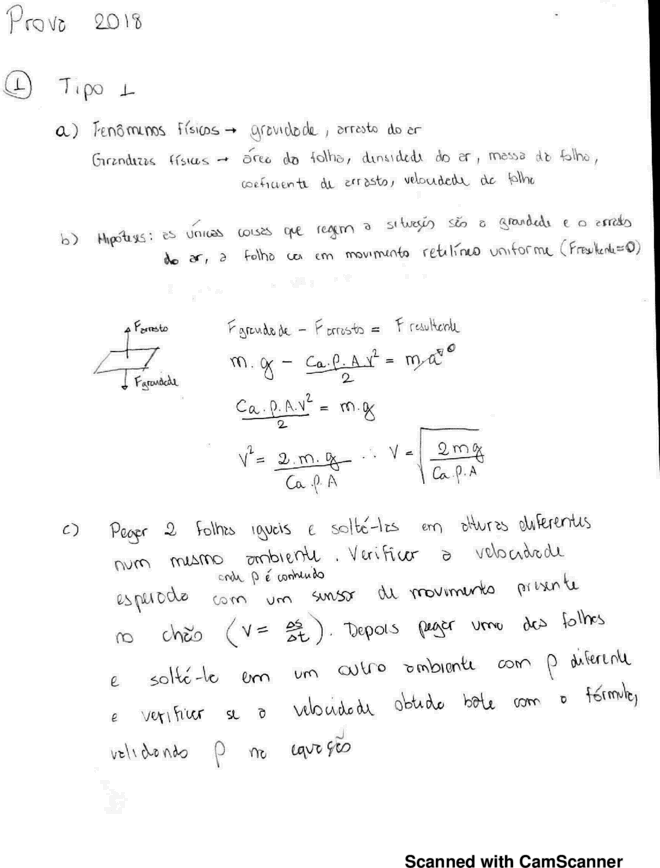 Prova 2018
1 Tipo 1
a) Fenômenos físicos → gravidade, arrasto do ar
Grandezas físicas → área da folha, densidade do ar, massa da folha,
coeficiente de arrasto, velocidade da folha
b) Hipóteses: as únicas coisas que regem a situação são a gravidade e o arrasto
do ar, a folha cai em movimento retilíneo uniforme (Fresultante=0)
Farrasto
Fgravidade
Fgravidade - Farrasto = Fresultante
m.g - Ca.ρ.A.v²/2 = m.a → 0
Ca.ρ.A.v²/2 = m.g
v² = 2.m.g/Ca.ρ.A ∴ v = √(2mg/Ca.ρ.A)
c) Pegar 2 folhas iguais e soltá-las em alturas diferentes
num mesmo ambiente. Verificar a velocidade
onde ρ é conhecido
esperada com um sensor de movimento presente
no chão (v = Δs/Δt). Depois pegar uma das folhas
e soltá-la em um outro ambiente com ρ diferente
e verificar se a velocidade obtida bate com a fórmula,
validando ρ na equação
Scanned with CamScanner